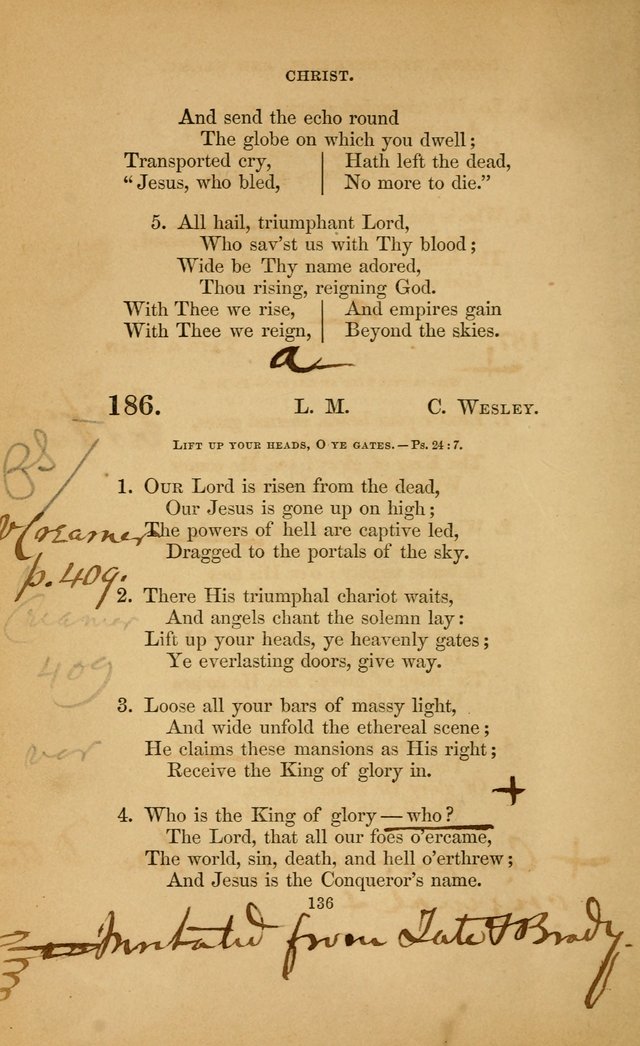 CHRIST.
And send the echo round
The globe on which you dwell;
Transported cry, | Hath left the dead,
“Jesus, who bled, | No more to die.”
5. All hail, triumphant Lord,
Who sav’st us with Thy blood;
Wide be Thy name adored,
Thou rising, reigning God.
With Thee we rise, | And empires gain
With Thee we reign, | Beyond the skies.
a
186. L. M. C. Wesley.
Lift up your heads, O ye gates.—Ps. 24:7.
1. Our Lord is risen from the dead,
Our Jesus is gone up on high;
The powers of hell are captive led,
Dragged to the portals of the sky.
v Creamer
p. 409.
2. There His triumphal chariot waits,
And angels chant the solemn lay:
Lift up your heads, ye heavenly gates;
Ye everlasting doors, give way.
Creamer
409
3. Loose all your bars of massy light,
And wide unfold the ethereal scene;
He claims these mansions as His right;
Receive the King of glory in.
var
+
4. Who is the King of glory—who?
The Lord, that all our foes o’ercame,
The world, sin, death, and hell o’erthrew;
And Jesus is the Conqueror’s name.
136
from Tate & Brady.